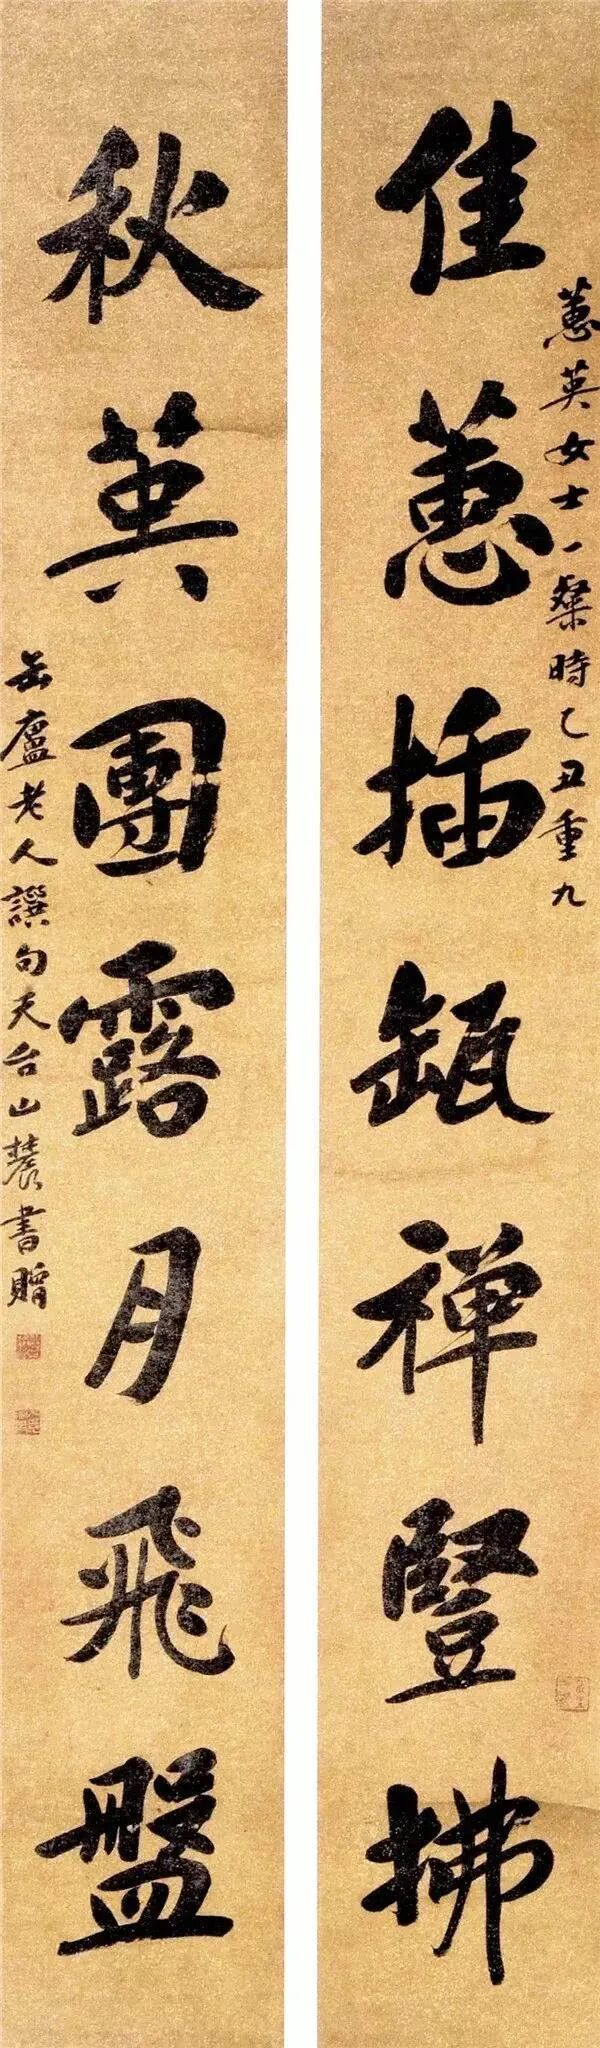 佳蕙插瓻禅豎拂
蕙英女士一粲時乙丑重九
秋英團露月飛盤
缶廬老人譔句天台山農書贈